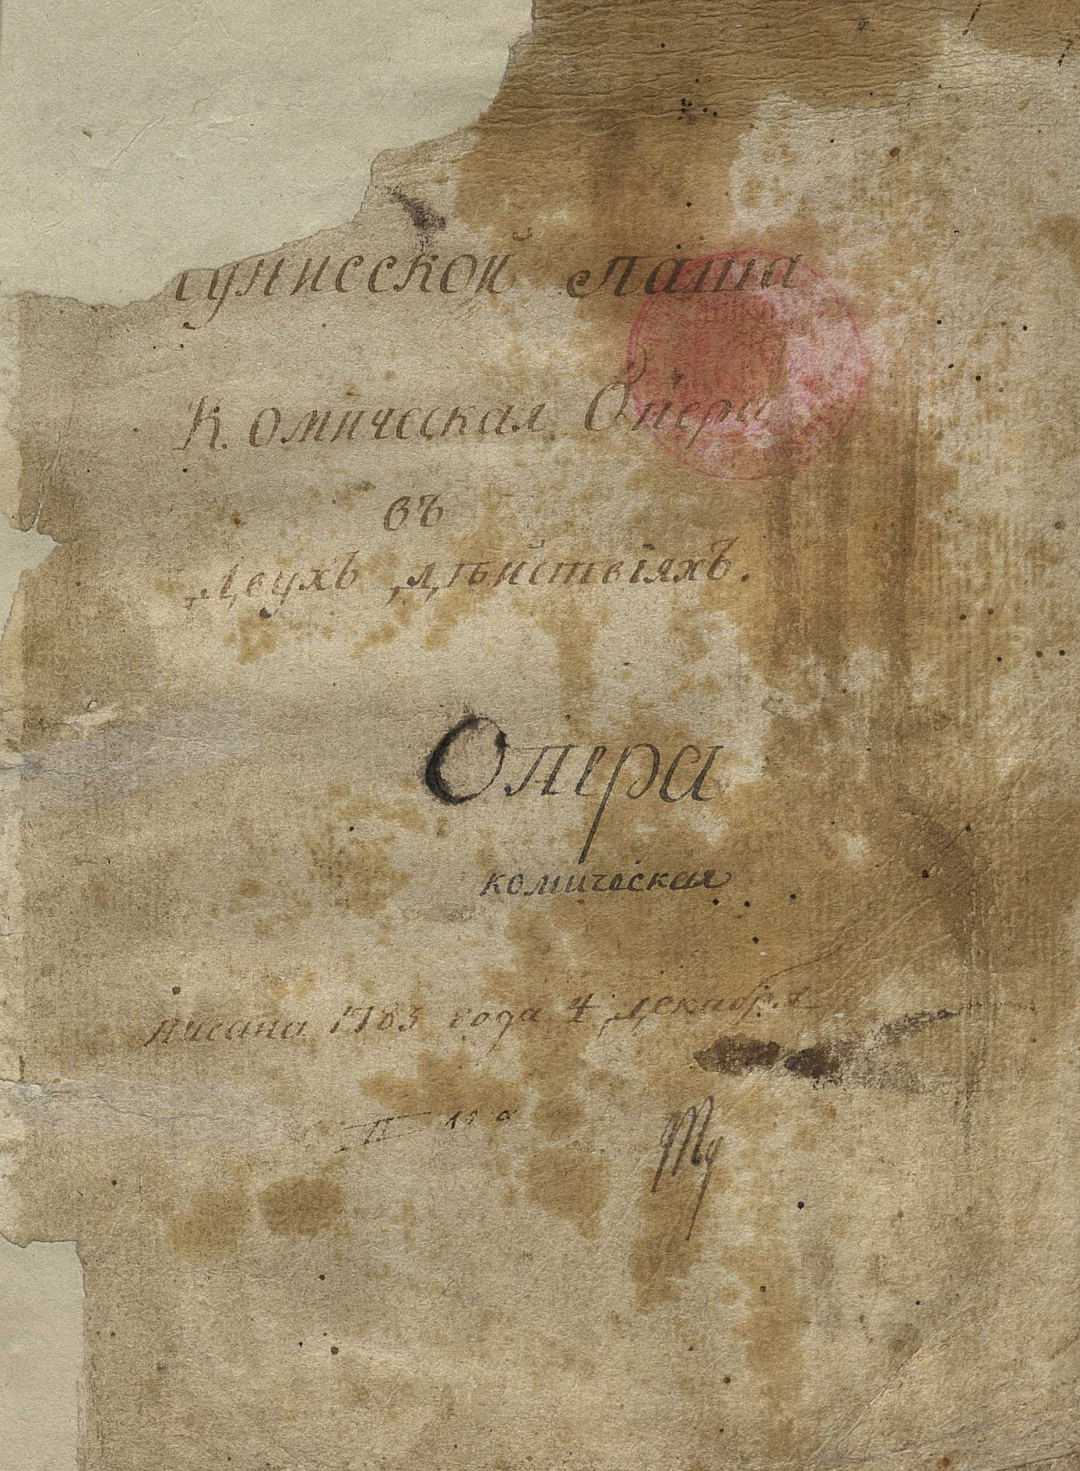 Тунисской паша
Комическая Опера
въ
двухъ дѣйствіяхъ.
Опера
комическая
писана 1783 года 4 декабря